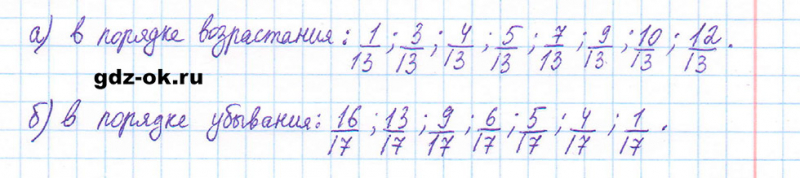 а) в порядке возрастания: 1/13; 3/13; 4/13; 5/13; 7/13; 9/13; 10/13; 12/13.
gdz-ok.ru
б) в порядке убывания: 16/17; 13/17; 9/17; 6/17; 5/17; 4/17; 1/17.